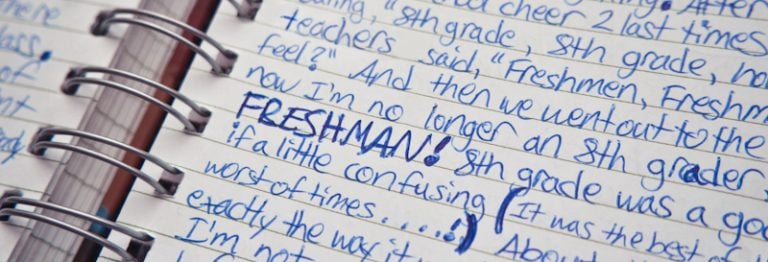 here
lass.
of
nt
After
cheer 2 last times
"8th grade, 8th grade,
teachers said, "Freshmen, Freshm
feel?" And then we went out to the
now I'm no longer an 8th grader,
FRESHMAN! 8th grade was a goo
if a little confusing (It was the best of
worst of times.....:) Abou
exactly the way it
I'm not